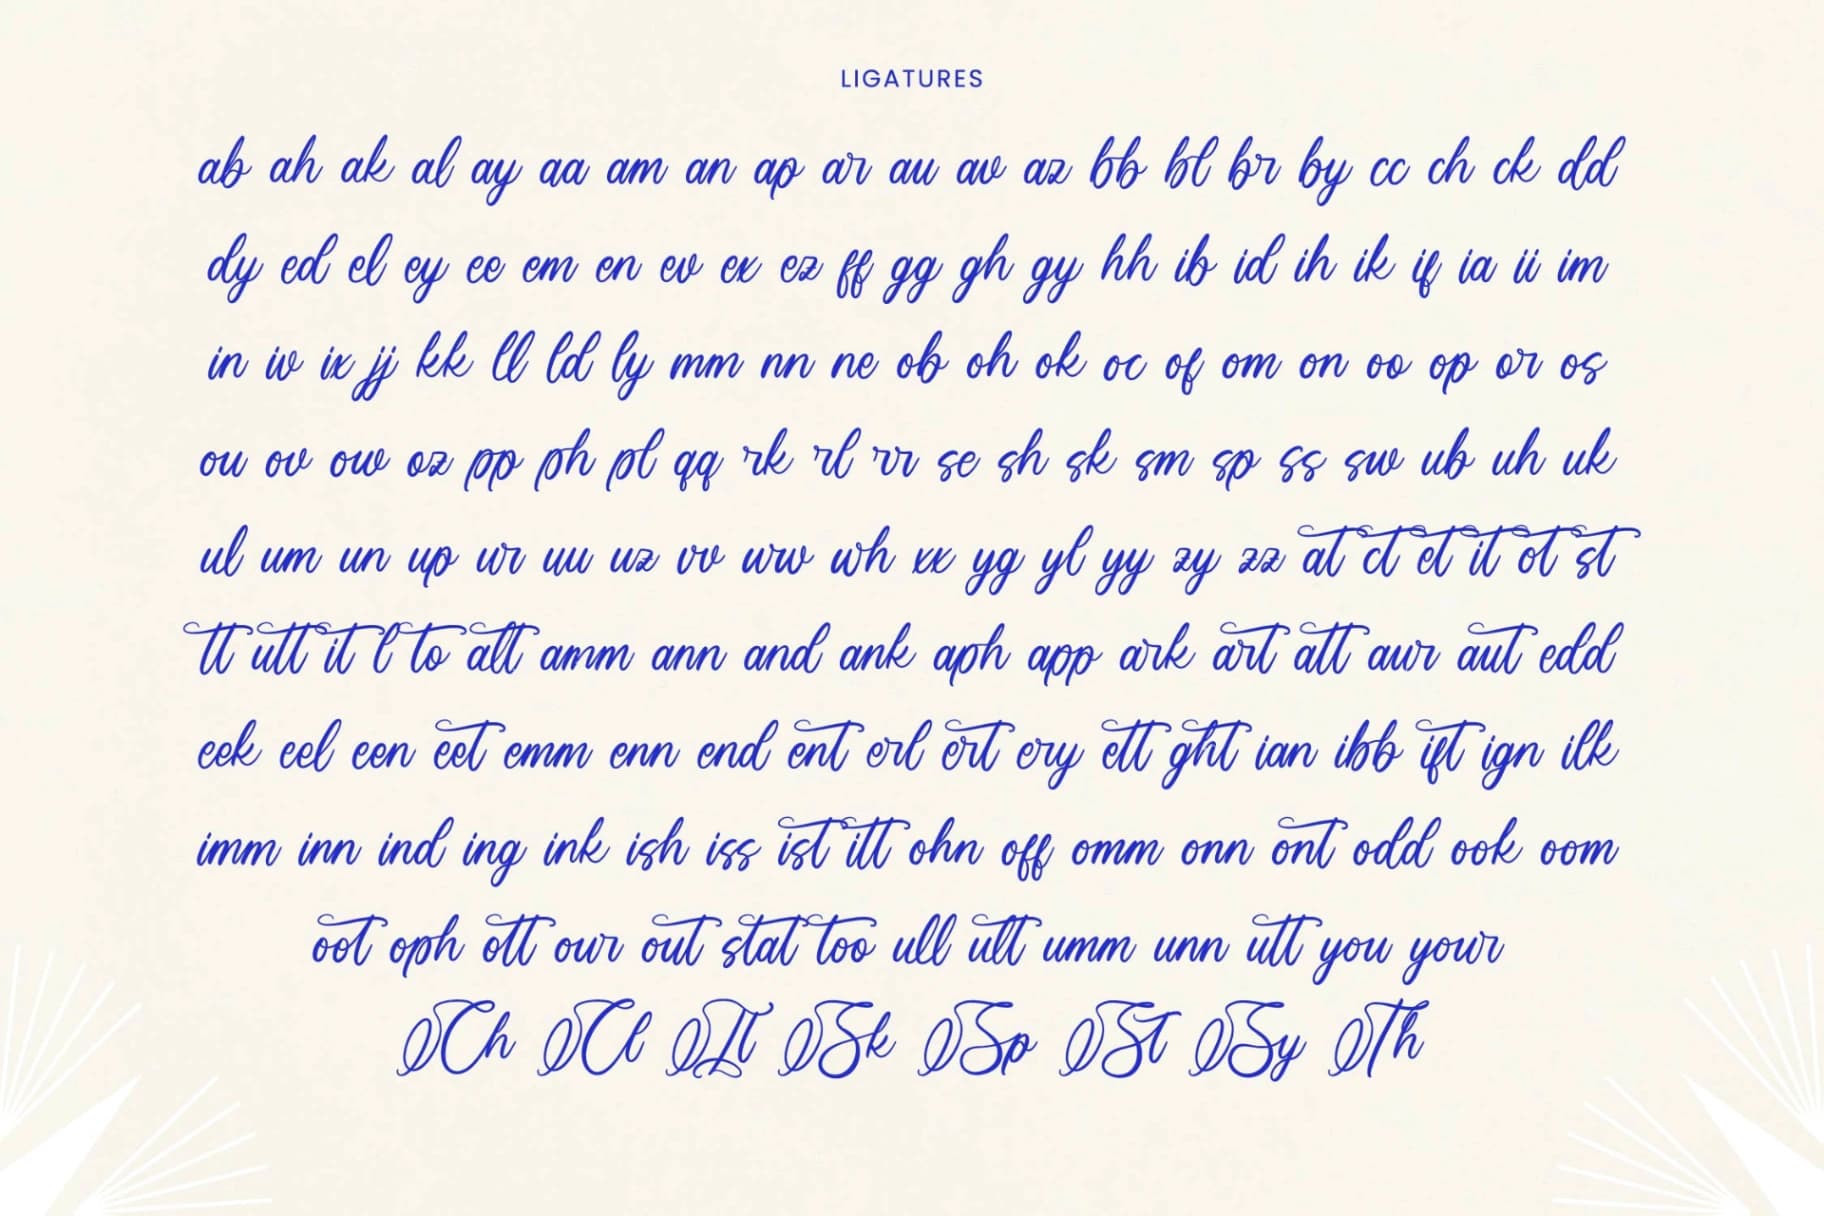 LIGATURES
ab ah ak al ay aa am an ap ar au av az bb bl br by cc ch ck dd
dy ed el ey ee em en ev ex ez ff gg gh gy hh ib id ih ik if ia ii im
in iv ix jj kk ll ld ly mm nn ne ob oh ok oc of om on oo op or os
ou ov ow oz pp ph pl qq rk rl rr se sh sk sm sp ss sw ub uh uk
ul um un up ur uu uz vv wh xx yg yl yy zy zz at ct et it ot st
tt utt it to alt amm ann and ank aph app ark art att aur aut edd
eek eel een eet emm enn end ent erl ert ery ett ght ian ibb ift ign ilk
imm inn ind ing ink ish iss ist itt ohn off omm onn ont odd ook oom
oot oph ott our out stat too ull ult umm unn utt you your
Ch Cl Lt Sk Sp St Sy Th